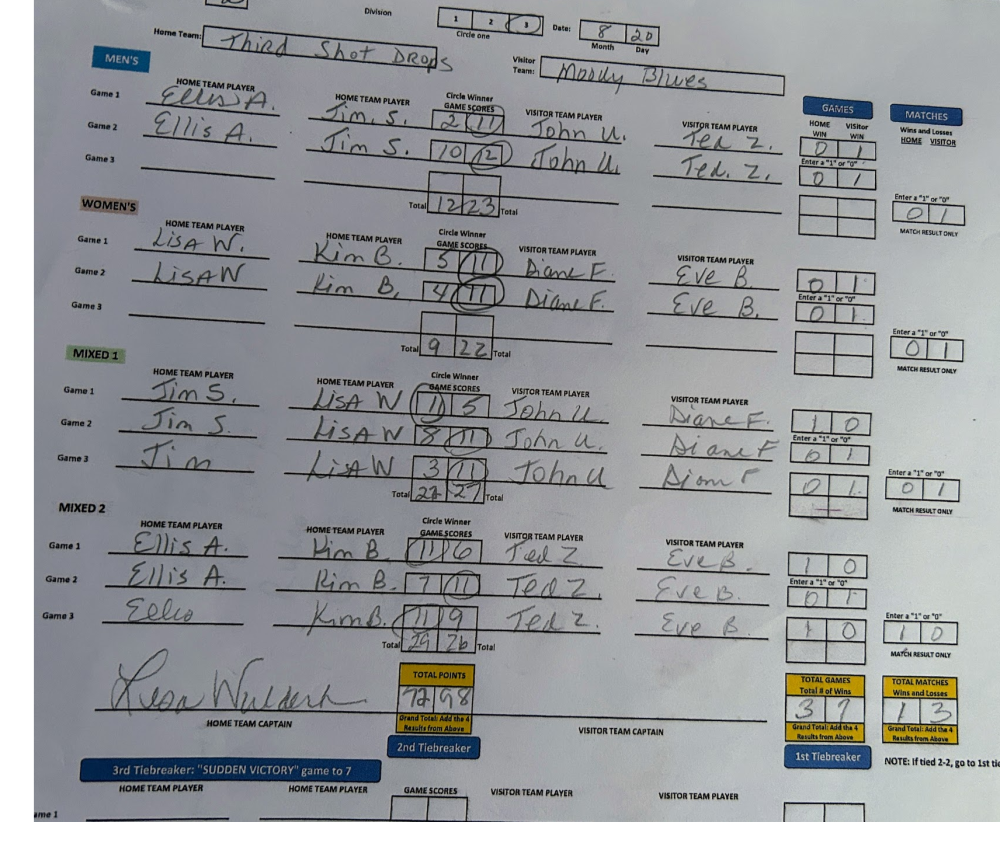 Division 1 2 3 Date: 8 20
Circle one Month Day
Home Team: Third Shot Drops Visitor Team: Moody Blues
MEN'S GAMES MATCHES
HOME TEAM PLAYER HOME TEAM PLAYER Circle Winner GAME SCORES VISITOR TEAM PLAYER VISITOR TEAM PLAYER HOME WIN Visitor WIN Wins and Losses HOME VISITOR
Game 1 Ellis A. Jim. S. 2 11 John U. Ted Z. 0 1
Enter a "1" or "0"
Game 2 Ellis A. Jim S. 10 12 John U. Ted. Z. 0 1
Game 3 Enter a "1" or "0"
Total 12 23 Total 0 1
MATCH RESULT ONLY
WOMEN'S
HOME TEAM PLAYER HOME TEAM PLAYER Circle Winner GAME SCORES VISITOR TEAM PLAYER VISITOR TEAM PLAYER
Game 1 LISA W. Kim B. 5 11 Diane F. Eve B. 0 1
Enter a "1" or "0"
Game 2 LISA W Kim B. 4 11 Diane F. Eve B. 0 1
Game 3 Enter a "1" or "0"
Total 9 22 Total 0 1
MATCH RESULT ONLY
MIXED 1
HOME TEAM PLAYER HOME TEAM PLAYER Circle Winner GAME SCORES VISITOR TEAM PLAYER VISITOR TEAM PLAYER
Game 1 Jim S. LISA W 11 5 John U. Diane F. 1 0
Enter a "1" or "0"
Game 2 Jim S. LISA W 8 11 John U. Diane F 0 1
Enter a "1" or "0"
Game 3 Jim LISA W 3 11 John U 0 1 0 1
Total 27 Total MATCH RESULT ONLY
MIXED 2
HOME TEAM PLAYER HOME TEAM PLAYER Circle Winner GAME SCORES VISITOR TEAM PLAYER VISITOR TEAM PLAYER
Game 1 Ellis A. Kim B. 11 6 Ted Z Eve B. 1 0
Enter a "1" or "0"
Game 2 Ellis A. Kim B. 7 11 Ted Z. Eve B. 0 1
Enter a "1" or "0"
Game 3 Kim B. 11 9 Ted Z. Eve B. 1 0 1 0
Total 29 26 Total MATCH RESULT ONLY
TOTAL POINTS TOTAL GAMES Total # of Wins TOTAL MATCHES Wins and Losses
72 98 3 7 1 3
HOME TEAM CAPTAIN Grand Total: Add the 4 Results from Above VISITOR TEAM CAPTAIN Grand Total: Add the 4 Results from Above Grand Total: Add the 4 Results from Above
2nd Tiebreaker 1st Tiebreaker NOTE: If tied 2-2, go to 1st
3rd Tiebreaker: "SUDDEN VICTORY" game to 7
HOME TEAM PLAYER HOME TEAM PLAYER GAME SCORES VISITOR TEAM PLAYER VISITOR TEAM PLAYER
ame 1